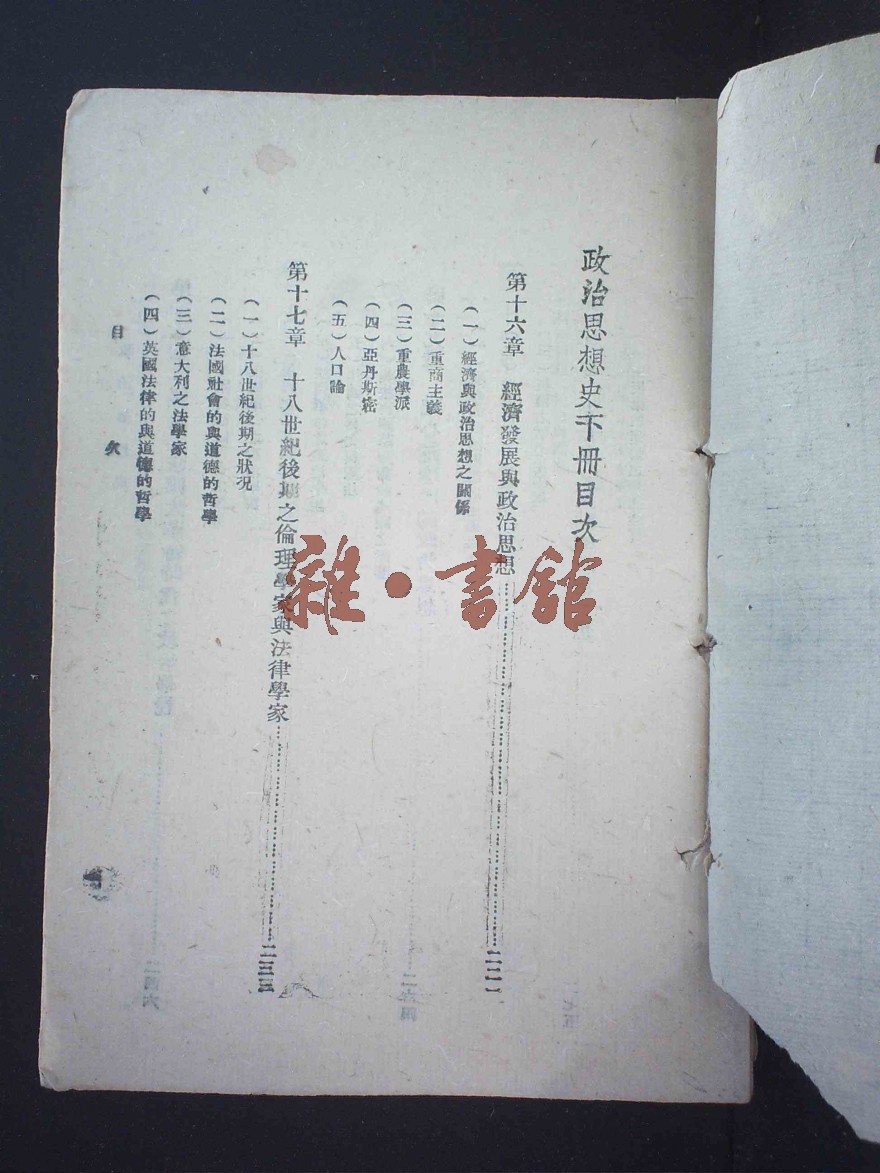 政治思想史下冊目次
第十六章 經濟發展與政治思想……二二一
(一)經濟與政治思想之關係
(二)重商主義
(三)重農學派
(四)亞丹斯密
(五)人口論
第十七章 十八世紀後期之倫理學家與法律學家……二三三
(一)十八世紀後期之狀況
(二)法國社會的與道德的哲學
(三)意大利之法學家
(四)英國法律的與道德的哲學
目 次
雜·書館